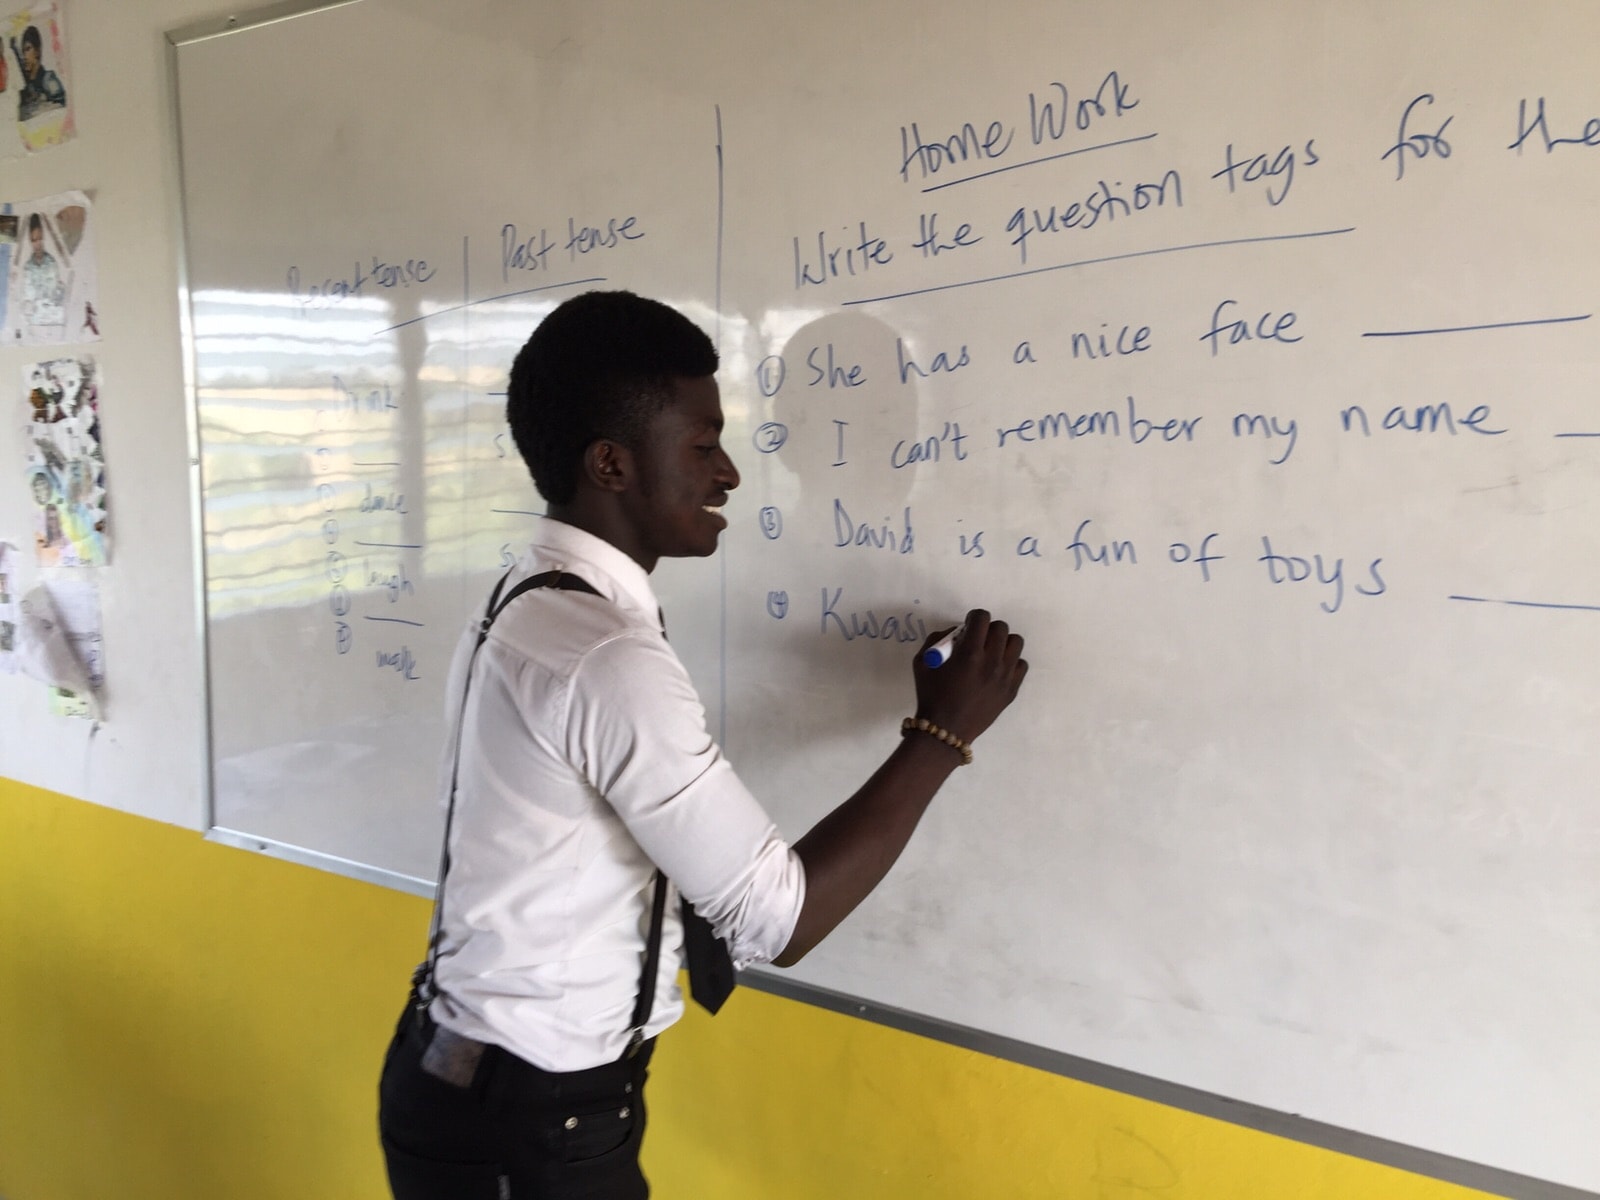 Present tense | Past tense
Drink
dance
laugh
walk
Home Work
Write the question tags for the
① She has a nice face
② I can't remember my name
③ David is a fun of toys
④ Kwasi